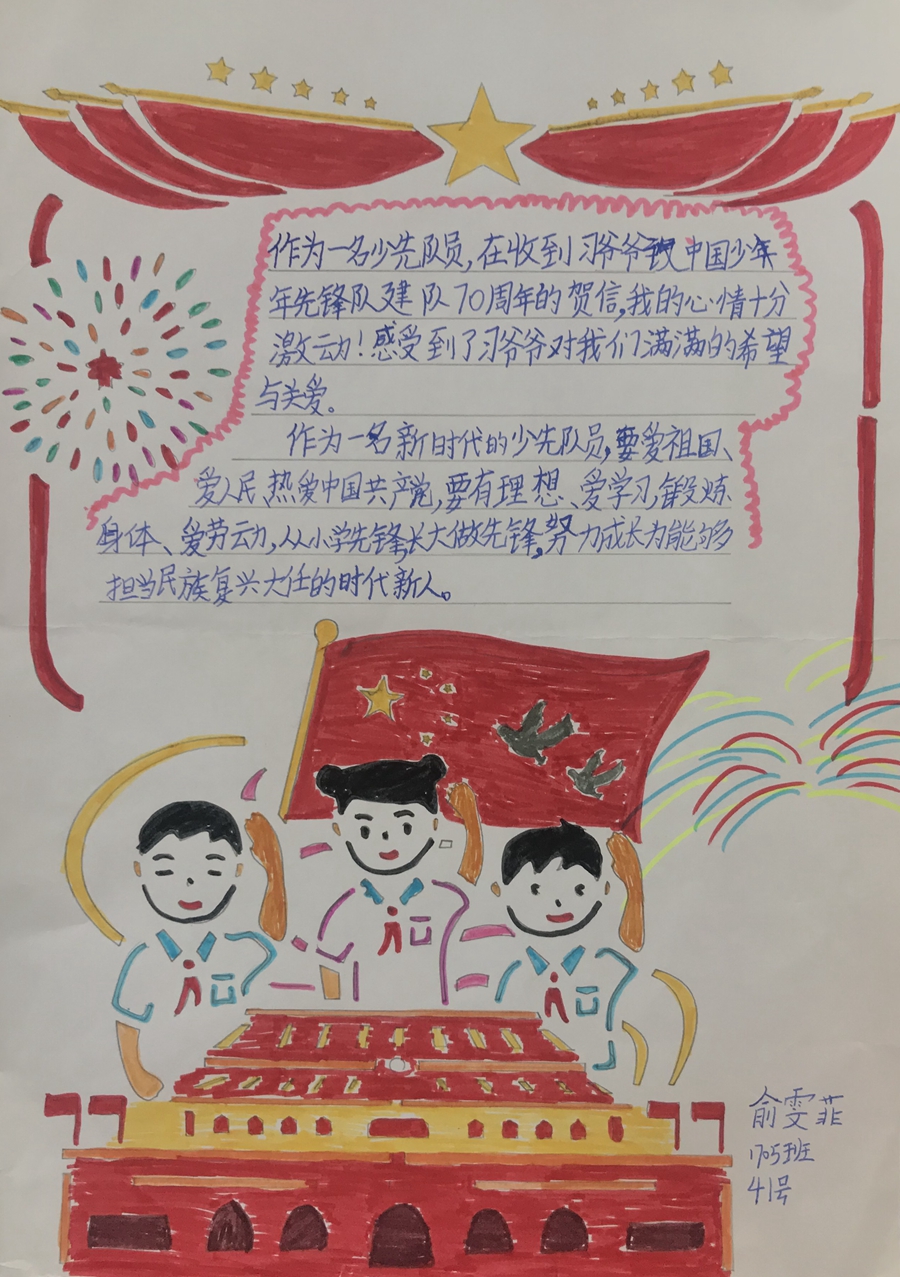 作为一名少先队员,在收到习爷爷致中国少年
年先锋队建队70周年的贺信,我的心情十分
激动!感受到了习爷爷对我们满满的希望
与关爱。
作为一名新时代的少先队员,要爱祖国、
爱人民、热爱中国共产党,要有理想、爱学习,锻炼
身体、爱劳动,从小学先锋,长大做先锋,努力成长为能够
担当民族复兴大任的时代新人。
俞雯菲
1705班
41号